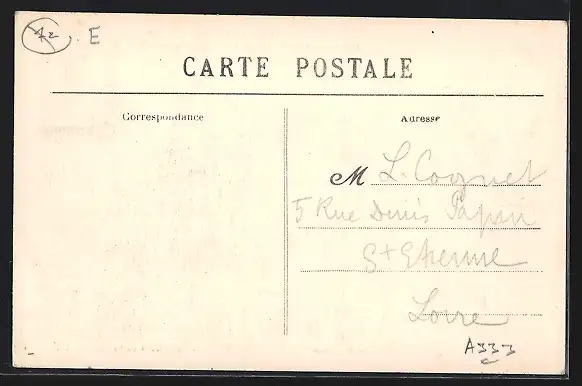 42 E
CARTE POSTALE
Correspondance
Adresse
M L. Cognet
5 Rue Denis Papin
St Etienne
Loire
A333